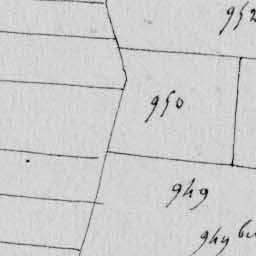 952
950
949
949 bis